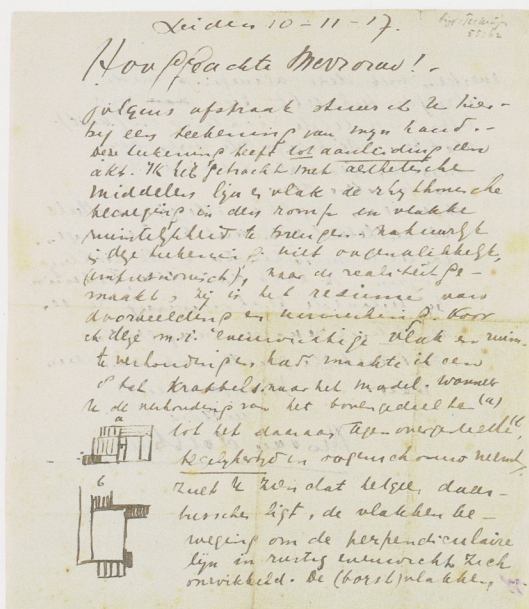 Leiden 10-11-17.
Hooggeachte Mevrouw!
Volgens afspraak stuur ik U hier-
bij een teekening van mijn hand.-
Deze teekening heeft tot aanleiding een
akt. Ik heb getracht met aesthetische
middelen lijn en vlak de rhythmische
beweging in den romp en vlakke
ruimtelijkheid te brengen. natuurlijk
is deze teekening niet oogenblikkelijk,
(impressionisch), naar de realiteit ge-
maakt, zij is het resumé van
doorbeelding en verwerking. Voor
ik deze m.i. evenwichtige vlak en ruim-
te verhoudingen had maakte ik een
tal krabbels naar het model. Wanneer
U de verhouding van het bovengedeelte (a)
a
tot het daaraan tegenovergestelde
tegelijkertijd in oogenschouw neemt,
b
zult U zien dat hetgeen daar-
tusschen ligt, de vlakken be-
weging om de perpendiculaire
lijn in rustig evenwicht zich
ontwikkeld. De (borst)vlakken,